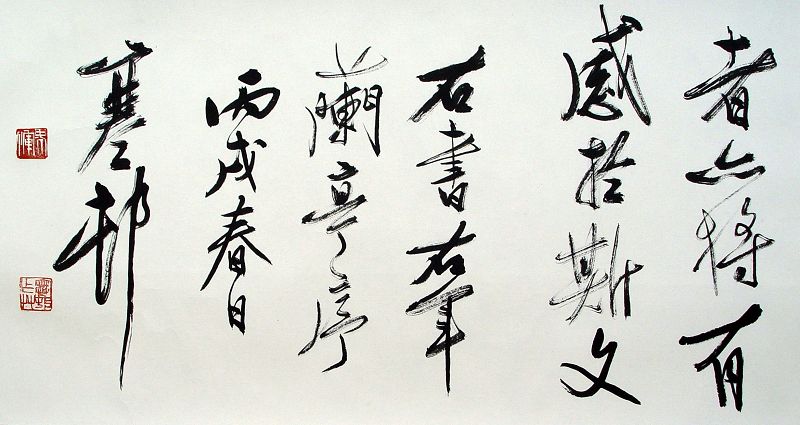 者亦將有
感於斯文
右書右軍
之蘭亭序
丙戌春日
寒邨